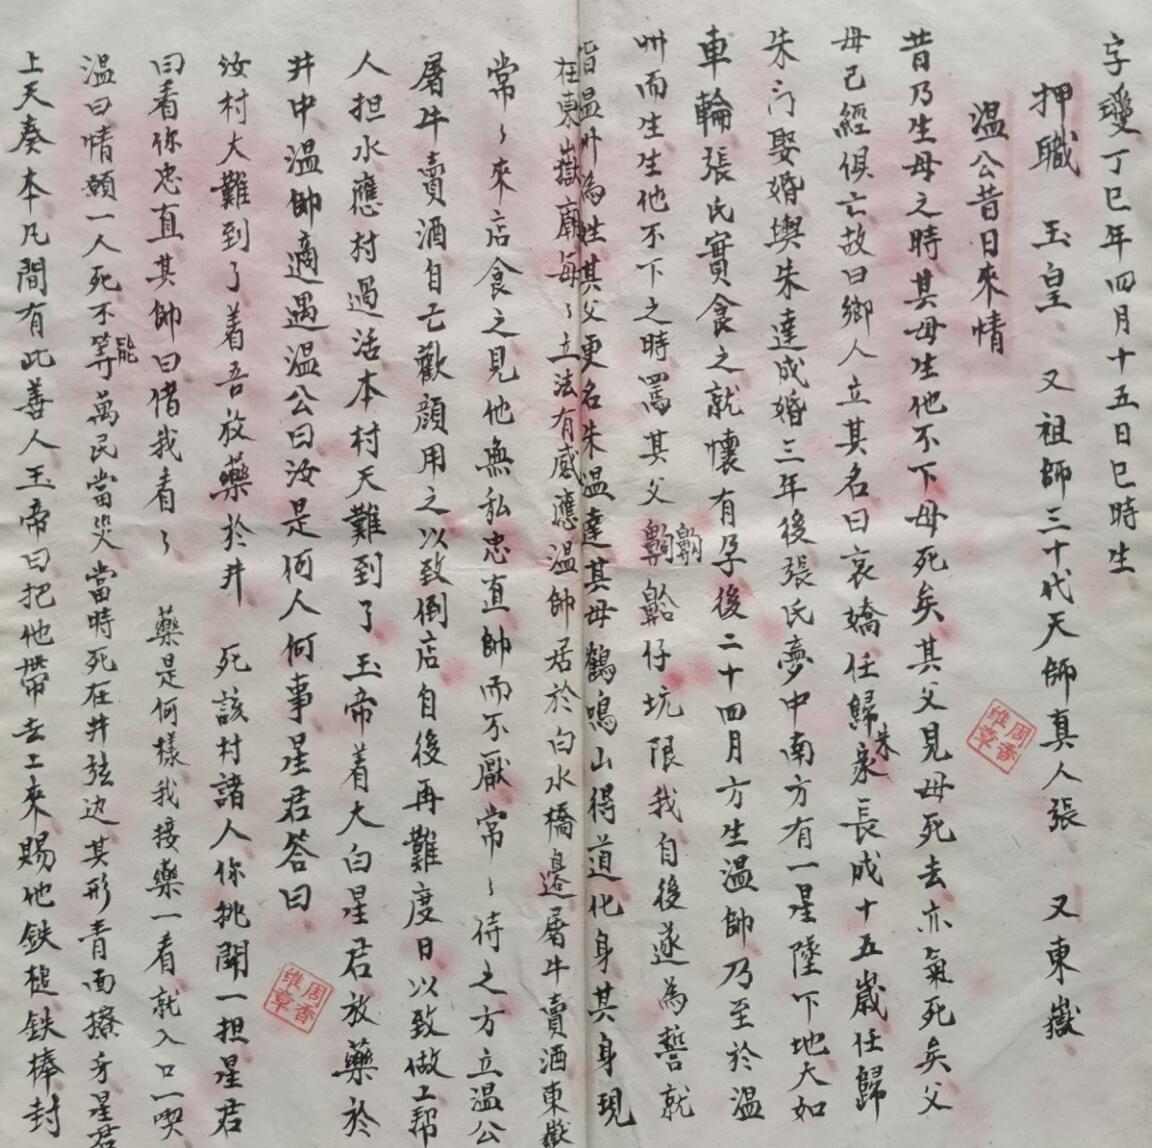 字瓊丁巳年四月十五日巳時生
押職 玉皇 又祖師三十代天師真人張 又東嶽
溫公昔日來情
昔乃生母之時其母生他不下母死矣其父見母死去亦氣死矣父
母已經俱亡故曰鄉人立其名曰哀嬌任歸朱家長成十五歲任歸
朱门娶婚與朱達成婚三年後張氏夢中南方有一星墜下地大如
車輪張氏實食之就懷有孕後二十四月方生溫帥乃至於溫
州而生生他不下之時罵其父仔坑限我自後遂為誓就
皆溫州為姓其父更名朱溫達其母鶴鳴山得道化身其身現
在東嶽廟每々立法有感應溫帥居於白水橋邊屠牛賣酒東嶽
常々來店食之見他無私忠直帥而不厭常々待之方立溫公
屠牛賣酒自亡歡顏用之以致倒店自後再難度日以致做工帮
人担水應村過活本村天難到了玉帝着大白星君放藥於
井中溫帥適遇溫公曰汝是何人何事星君答曰
汝村大難到了着吾放藥於井 死該村諸人你挑開一担星君
曰看你忠直其帥曰借我看々 藥是何樣我接藥一看就入口一喫
溫曰情願一人死不能等萬民當災當時死在井弦边其形青面獠牙星君
上天奏本凡間有此善人玉帝曰把他帶去上來賜他鉄槌鉄棒封
周香維章
周香維章